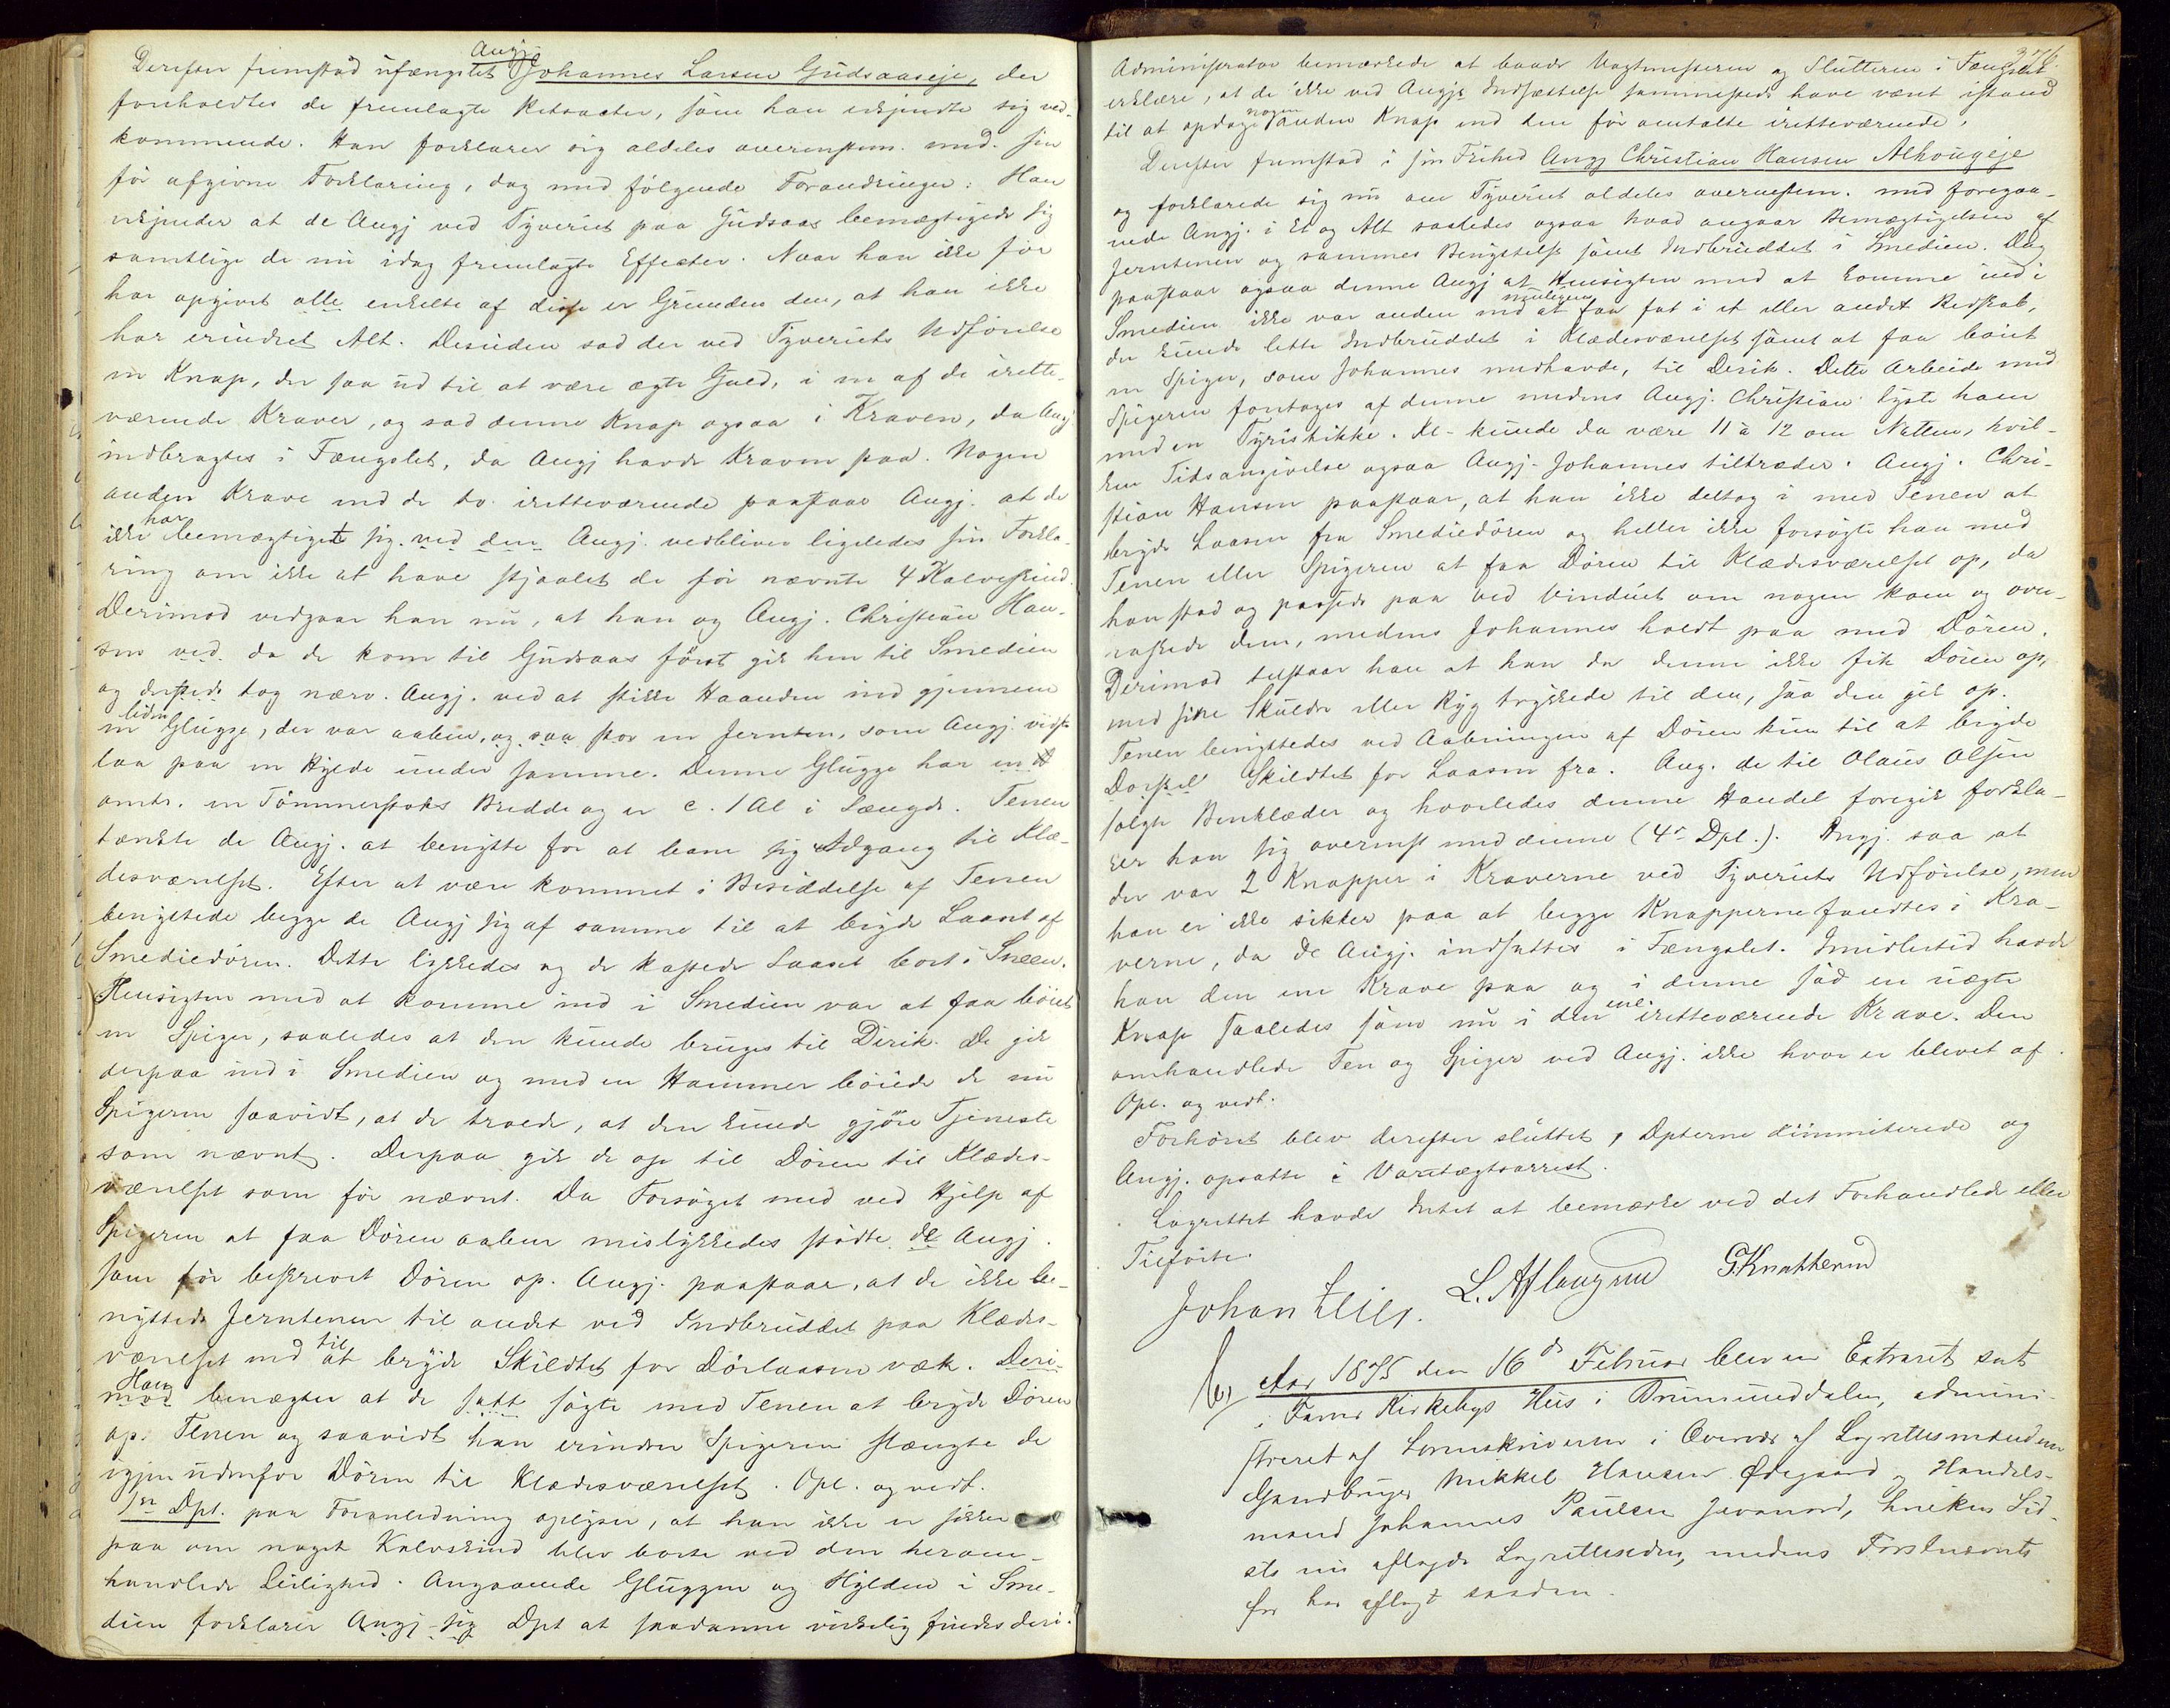 Angj.
Derefter fremstod ufængslet Johannes Larsen Gudsaaseje, der
foreholdtes de fremlagte Retsacter, som han erkjendte sig ved-
kommende. Han forklarer sig aldeles overensstem. med sin
før afgivne Forklaring, dog med følgende Forandringer: Han
erkjender at de Angj ved Tyveriet paa Gudsaas bemægtigede sig
samtlige de nu idag fremlagte Effecter. Naar han ikke før
har opgivet alle enkelte af disse er Grunden den, at han ikke
har erindret Alt. Desuden sad der ved Tyveriets Udførelse
en Knap, der saa ud til at være ægte Guld, i en af de irette-
værende Kraver, og sad denne Knap ogsaa i Kraven, da Angj
indbragtes i Fængslet, da Angj havde Kraven paa. Nogen
anden Krave end de to iretteværende paastaar Angj. at de
ikke har bemægtiget sig. ved den Angj. vedbliver ligeledes sin Forkla-
ring om ikke at have stjaalet de før nævnte 4 Kalveskind.
Derimod vedgaar han nu, at han og Angj. Christian Han-
sen ved da de kom til Gudsaas først gik hen til Smedien
og dersteds tog nærv. Angj. ved at stikke Haanden ind gjennem
en liden Glugge, der var aaben, og saa stor en Jernten, som Angj. vidste
laa paa en Hylde under samme. Denne Glugge har endt
omtr. en Tømmerstoks Bredde og er c. 1 Al i Længde. Tenen
tænkte de Angj. at benytte for at bane sig Adgang til Klæ-
desværelset. Efter at være kommet i Besiddelse af Tenen
benyttede begge de Angj sig af samme til at bryde Laaset af
Smediedøren. Dette lykkedes og de kastede Laaset bort i Sneen.
Hensigten med at komme ind i Smedien var at faa bøiet
en Spiger, saaledes at den kunde bruges til Dirik. De gik
derpaa ind i Smedien og med en Hammer bøiede de nu
Spigeren saavidt, at de troede, at den kunde gjøre Tjeneste
som nævnt. Derpaa gik de op til Døren til Klædes-
værelset som før nævnt. Da Forsøget med ved Hjælp af
Spigeren at faa Døren aaben mislykkedes stødte de Angj.
som før beskrevet Døren op. Angj. paastaar, at de ikke be-
nyttede Jerntenen til andet ved Indbruddet paa Klædes-
værelset end til at bryde Skildtet for Dørlaasen væk. Deri-
mod Han benægter at de satt søgte med Tenen at bryde Døren
op. Tenen og saavidt han erindrer Spigeren slængte de
igjen udenfor Døren til Klædesværelset. Opl. og vedt.
1ste Dpt. paa Foranledning oplyser, at han ikke er sikker
paa om noget Kalveskind blev borte ved den herom-
handlede Leilighed. Angaaende Gluggen og Hylden i Sme-
dien forklarer Angj sig Dpt at saadanne virkelig findes deri.
376.
Administrator bemærkede at baade Vagtmesteren og Slutteren i Fængslet
erklære, at de ikke ved Angjs Indsættelse sammesteds have været istand
til at opdage nogen anden Knap end den før omtalte iretteværende.
Derefter fremstod i sin Frihed Angj Christian Hansen Alhougeje
og forklarede sig nu om Tyveriet aldeles overensstem. med foregaa-
ende Angj. i Et og Alt saaledes ogsaa hvad angaar Bemægtigelsen af
Jerntenen og sammes Benyttelse samt Indbruddet i Smedien. Dog
paastaar ogsaa denne Angj at Hensigten med at komme ind i
Smedien ikke var anden end muligens at faa fat i et eller andet Redskab,
der kunde lette Indbruddet i Klædesværelset samt at faa bøiet
en Spiger, som Johannes medhavde, til Dirik. Dette Arbeide med
Spigeren foretoges af denne medens Angj. Christian lyste ham
med en Tyristikke. Kl. kunde da være 11 à 12 om Natten, hvil-
ken Tidsangivelse ogsaa Angj. Johannes tiltræder. Angj. Chri-
stian Hansen paastaar, at han ikke deltog i med Tenen at
bryde Laasen fra Smediedøren og heller ikke forsøgte han med
Tenen eller Spigeren at faa Døren til Klædesværelset op, da
han stod og passede paa ved Vinduet om nogen kom og over-
raskede dem, medens Johannes holdt paa med Døren.
Derimod tilstaar han at han da denne ikke fik Døren op,
med sine Skuldre eller Ryg trykkede til den, saa den gik op.
Tenen benyttedes ved Aabningen af Døren kun til at bryde
Dørskil Skildtet for Laasen fra. Ang. de til Olaus Olsen
solgte Benklæder og hvorledes denne Handel foregik forkla-
rer han sig overenst med denne (4de Dpt.). Angj. saa at
der var 2 Knapper i Kraverne ved Tyveriets Udførelse, men
han er ikke sikker paa at begge Knapperne fandtes i Kra-
verne, da De Angj. indsattes i Fængslet. Imidlertid havde
han den ene Krave paa og i denne sad en uægte
Knap saaledes som nu i den ene iretteværende Krave. Den
omhandlede Ten og Spiger ved Angj. ikke hvor er blevet af.
Opl. og vedt.
Forhøret blev derefter sluttet, Dpterne dimmiterede og
Angj. opsatte i Varetægtsarrest.
Lagrettet havde Intet at bemærke ved det Forhandlede eller
Tilførte.
Johan L. Aflangrud G. Knatterud
Aar 1875 den 16de Februar blev en Extraret sat
i Farver Kirkebys Hus i Brumunddalen, admini-
streret af Sorenskriveren i Overvær af Lagrettesmændene
Gaardbruger Mikkel Hansen Ødegaard og Handels-
mand Johannes Paulsen Jevanord, hvilken Sid-
ste nu aflagde Lagrettesed, medens Førstnævnte
før har aflagt saadan.